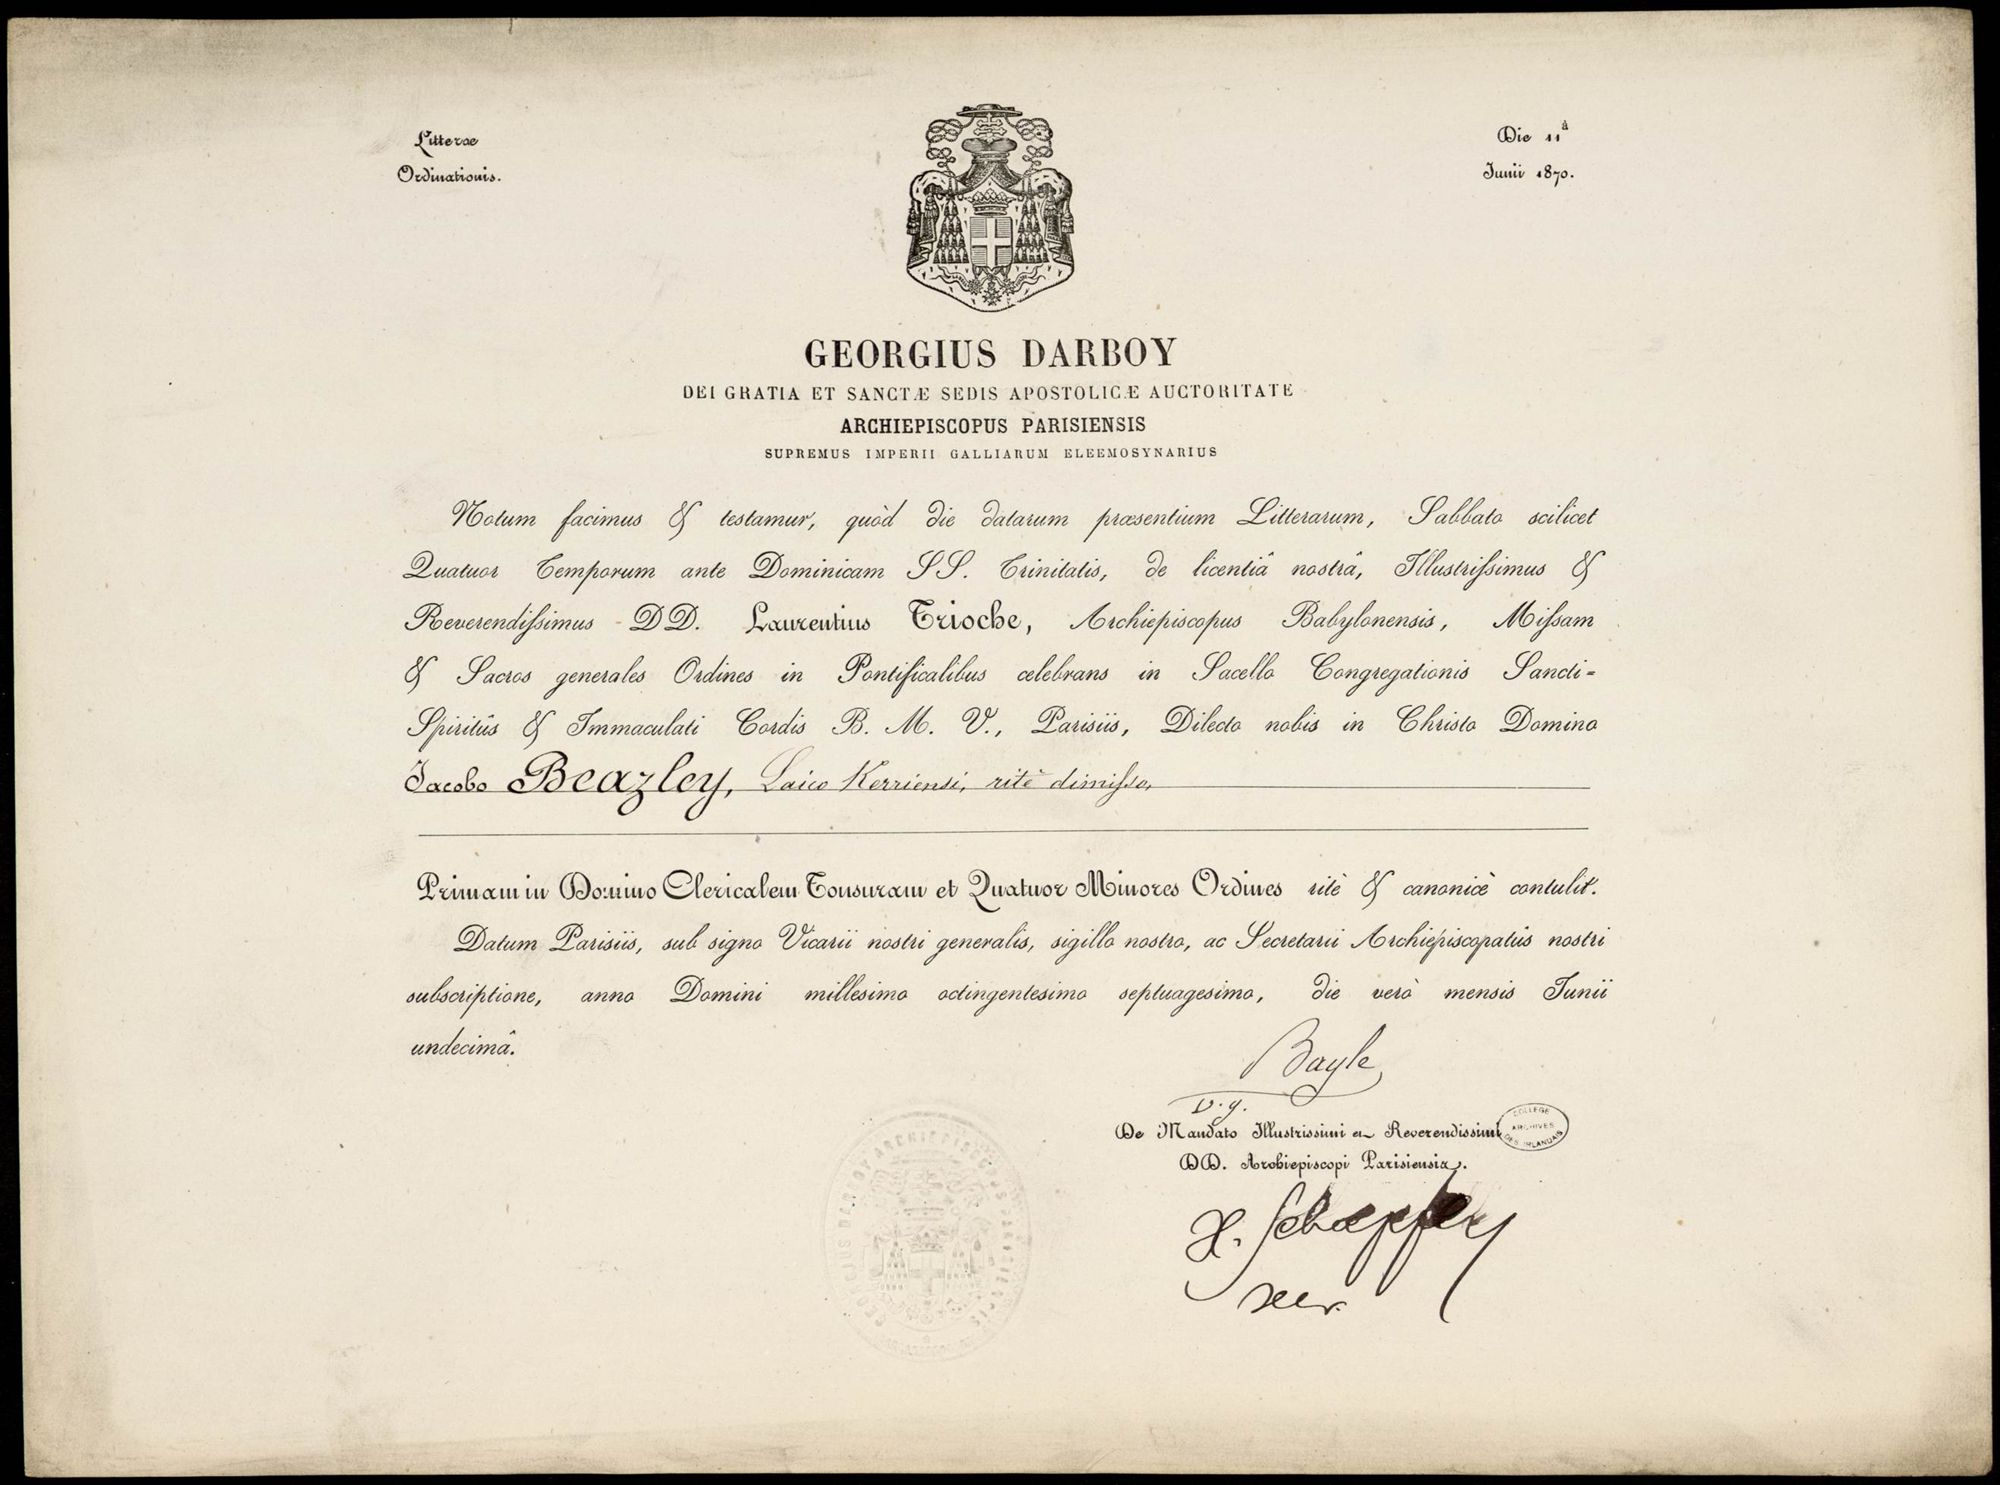 Litterae
Ordinationis.
Die 11ª
Junii 1870.
GEORGIUS DARBOY
DEI GRATIA ET SANCTÆ SEDIS APOSTOLICÆ AUCTORITATE
ARCHIEPISCOPUS PARISIENSIS
SUPREMUS IMPERII GALLIARUM ELEEMOSYNARIUS
Notum facimus & testamur, quòd die datarum præsentium Litterarum, Sabbato scilicet
Quatuor Temporum ante Dominicam SS. Trinitatis, de licentiâ nostrâ, Illustrissimus &
Reverendissimus DD. Laurentius Trioche, Archiepiscopus Babylonensis, Missam
& Sacros generales Ordines in Pontificalibus celebrans in Sacello Congregationis Sancti=
Spiritûs & Immaculati Cordis B. M. V., Parisiis, Dilecto nobis in Christo Domino
Jacobo Beazley, Laico Kerriensi, ritè dimisso,
Primam in Domino Clericalem Tonsuram et Quatuor Minores Ordines ritè & canonicè contulit.
Datum Parisiis, sub signo Vicarii nostri generalis, sigillo nostro, ac Secretarii Archiepiscopatûs nostri
subscriptione, anno Domini millesimo octingentesimo septuagesimo, die verò mensis Junii
undecimâ.
Bayle
v. g.
De Mandato Illustrissimi et Reverendissimi
DD. Archiepiscopi Parisiensis.
COLLEGE
ARCHIVES
DES IRLANDAIS
GEORGIUS DARBOY ARCHIEPISCOPUS PARISIENSIS